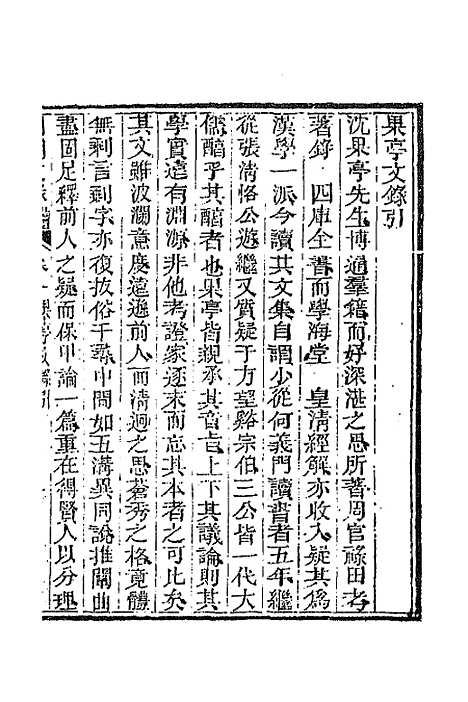 果亭文錄引
沈果亭先生博通羣籍而好深湛之思所著周官祿田考
著錄 四庫全書而學海堂 皇清經解亦收入疑其爲
漢學一派今讀其文集自謂少從何義門讀書者五年繼
從張清恪公遊繼又質疑于方望谿宗伯三公皆一代大
儒醕乎其醕者也果亭皆親承其音旨上下其議論則其
學實遠有淵源非他考證家逐末而忘其本者之可比矣
其文雖波瀾意度遠遜前人而清迥之思蒼秀之格竟體
無剩言剩字亦復拔俗千尋中間如五溝異同說推闡曲
盡固足釋前人之疑而保甲論一篇重在得賢人以分理